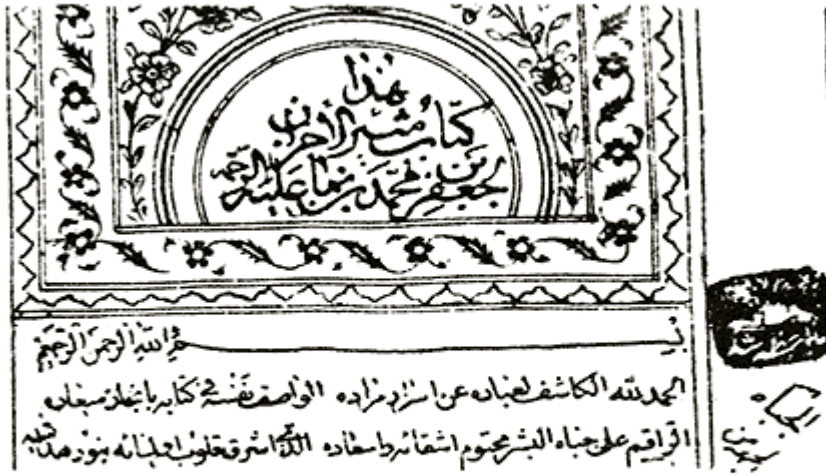 هذا
كتاب مثير الأحزان
لجعفر بن محمد بن نما عليه الرحمة
بسم الله الرحمن الرحيم
الحمد لله الكاشف لعباده عن اسرار مراده الواصف نفسه في كتابه بانجاز ميعاده
الراقم على جباه البشر محتوم اشقائه واسعاده الذي اشرق قلوب اوليائه بنور هدايته